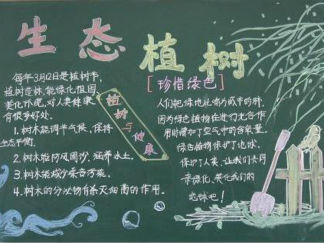 生态植树
[珍惜绿色]
每年3月12日是植树节,
植树造林,能绿化祖国,
美化环境,对人类健康
有很多好处。
1.树木能调节气候,保持
生态平衡。
2.树木能防风固沙,涵养水土。
3.树木能减少噪音污染。
4.树木的分泌物有杀灭细菌的作用。
植树与健康
人们把绿地比喻为城市的肺,
因为绿色植物在进行光合作
用时增加了空气中的含氧量,
绿色植物保护了地球,
保护了人类,让我们共同
来绿化、美化我们的
地球吧!